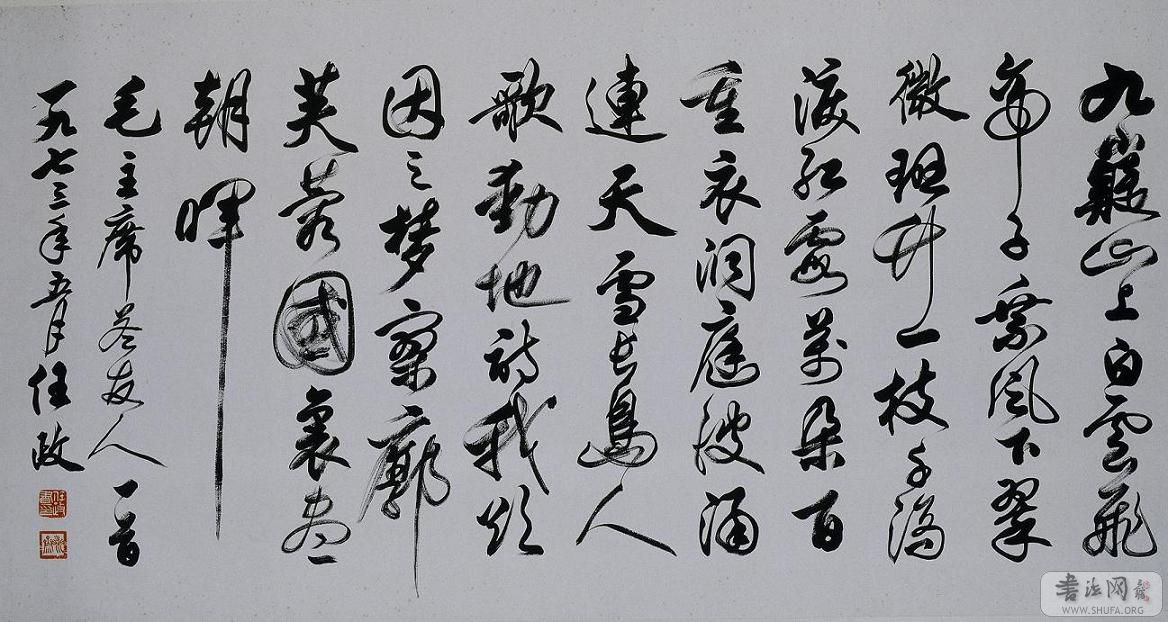 九嶷山上白雲飛
帝子乘風下翠
微斑竹一枝千滴
淚紅霞萬朵百
重衣洞庭波涌
連天雪長島人
歌動地詩我欲
因之梦寥廓
芙蓉國裏盡
朝暉
毛主席答友人一首
一九七三年五月任政
书法网
WWW.SHUFA.ORG